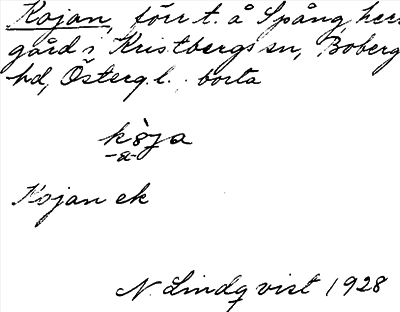 Kojan, förr t. å Spång herr
gård i Kristbergs sn, Boberg
hd, Österg.l.; borta
Kojan ek
N. Lindqvist 1928